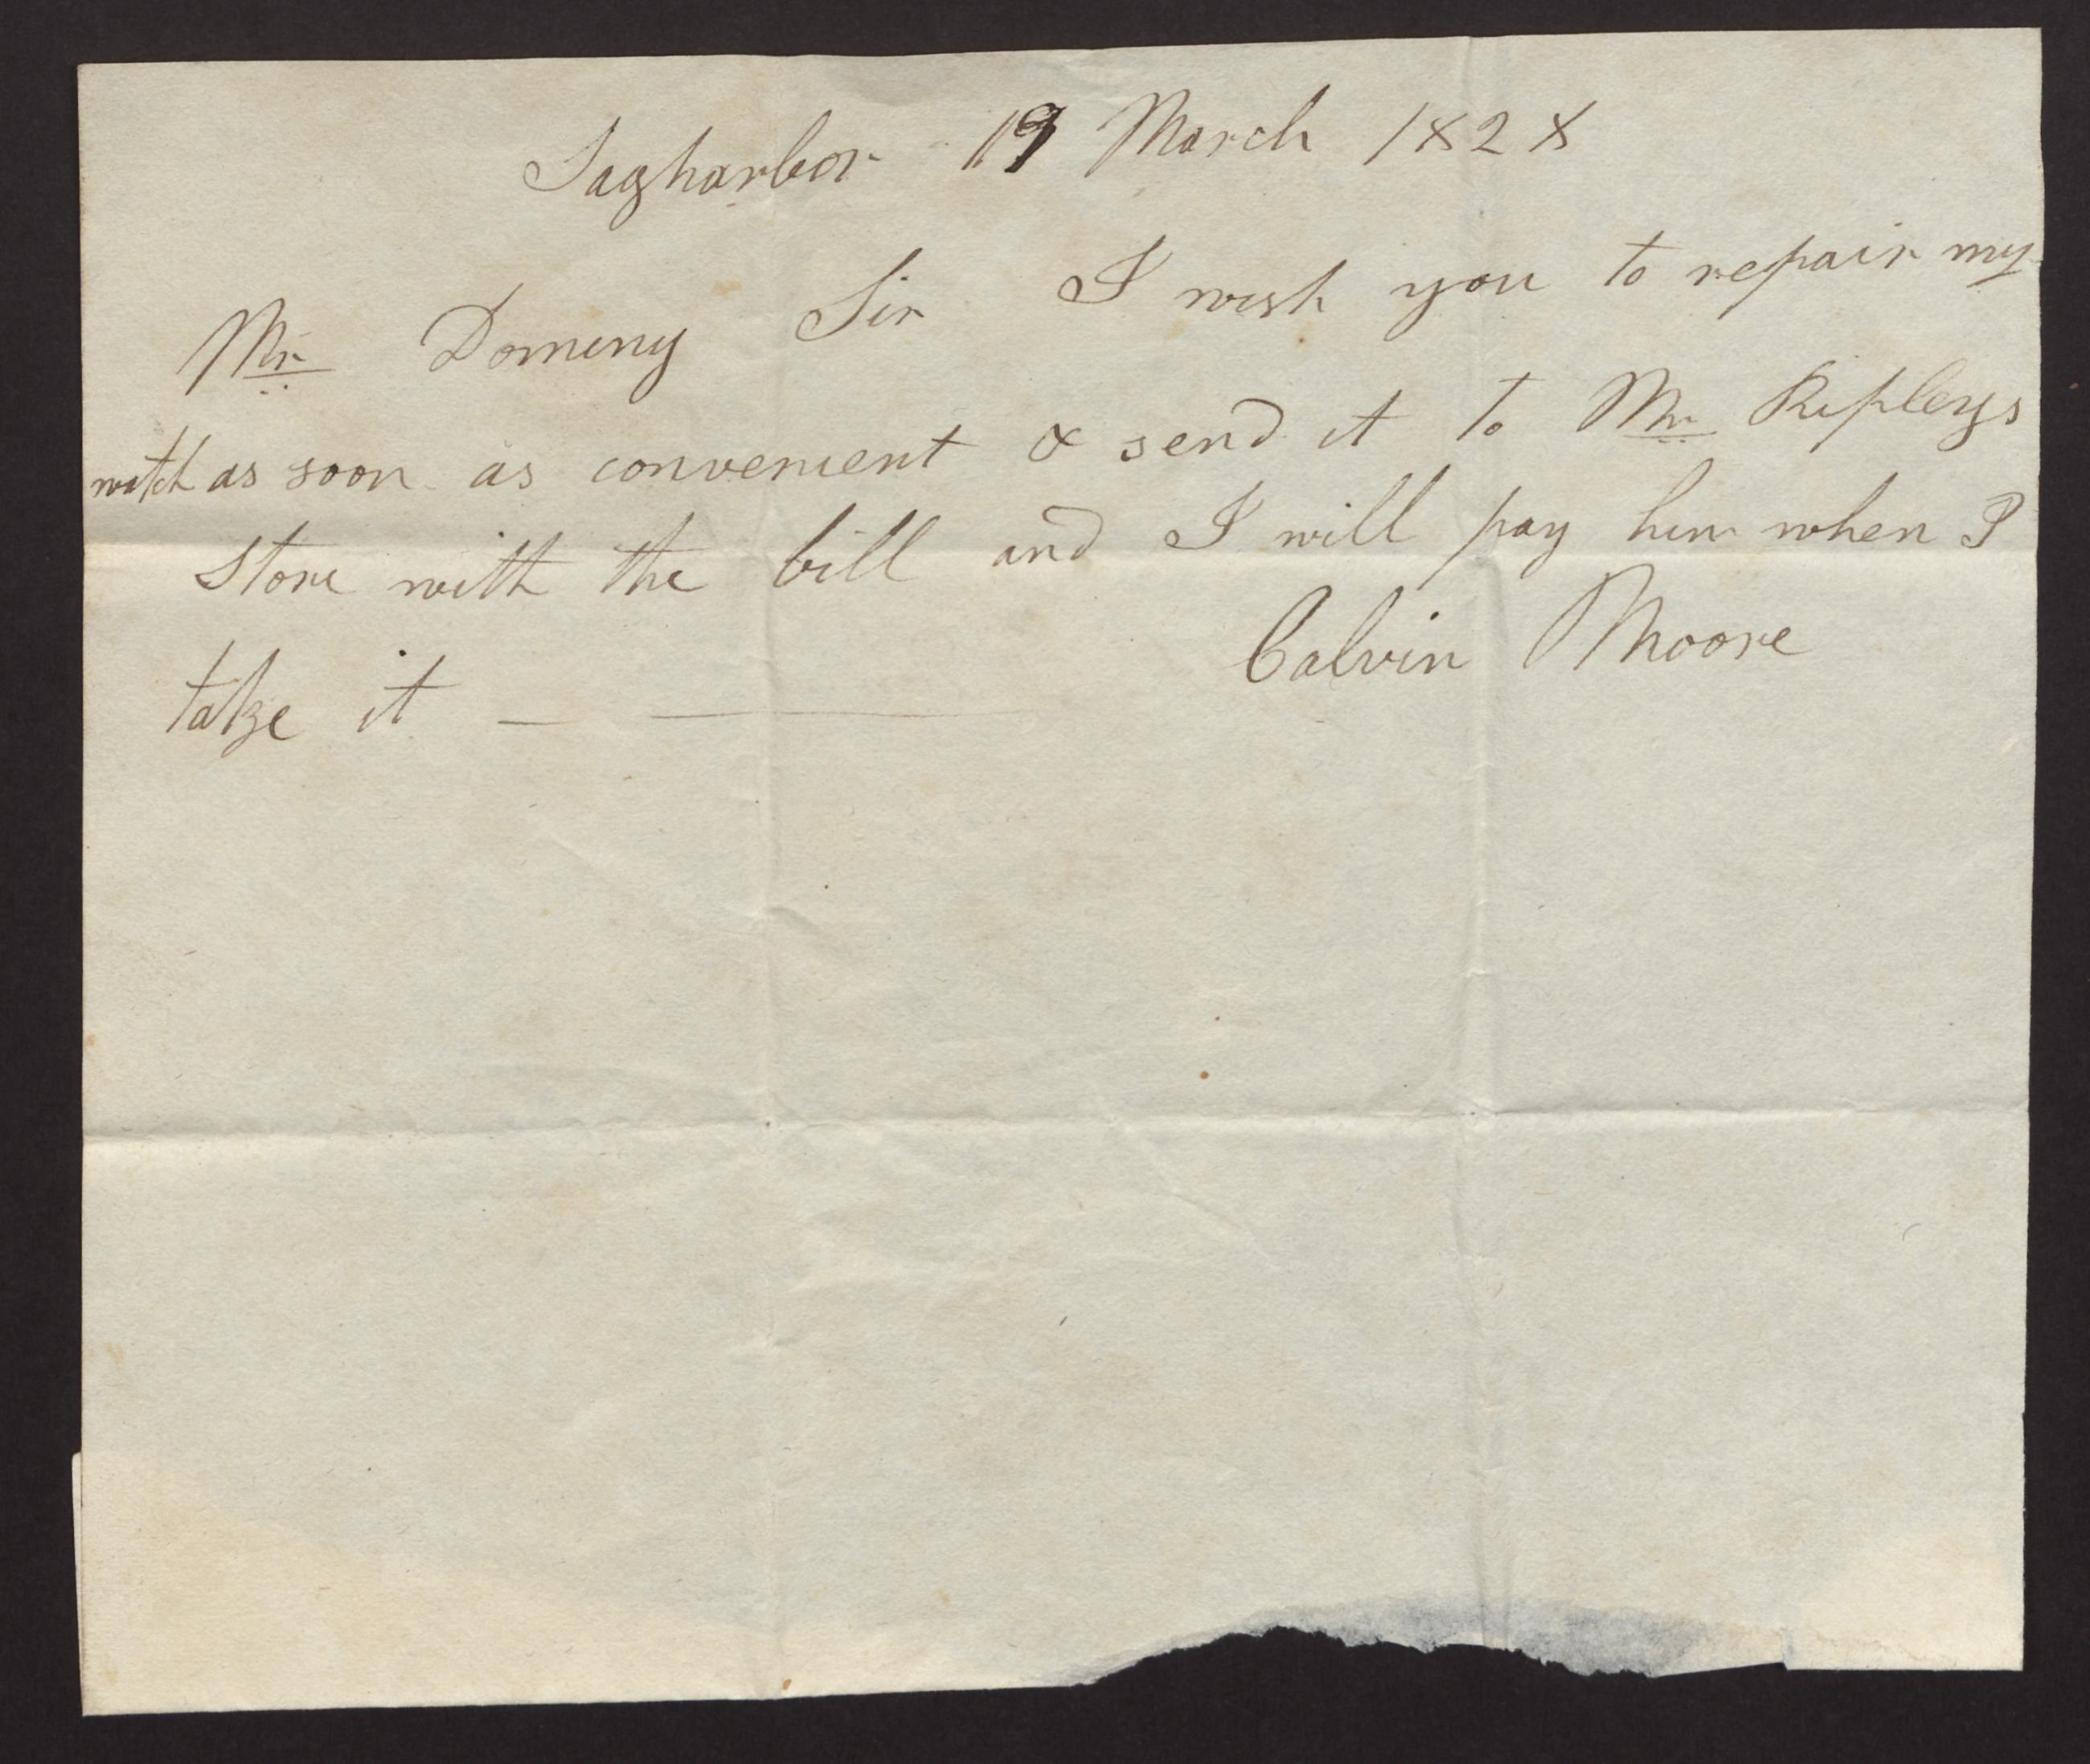 Sagharbor 19 March 1828
Mr Dominy Sir I wish you to repair my
watch as soon as convenient & send it to Mr Ripleys
store with the bill and I will pay him when I
take it — ———
Calvin Moore